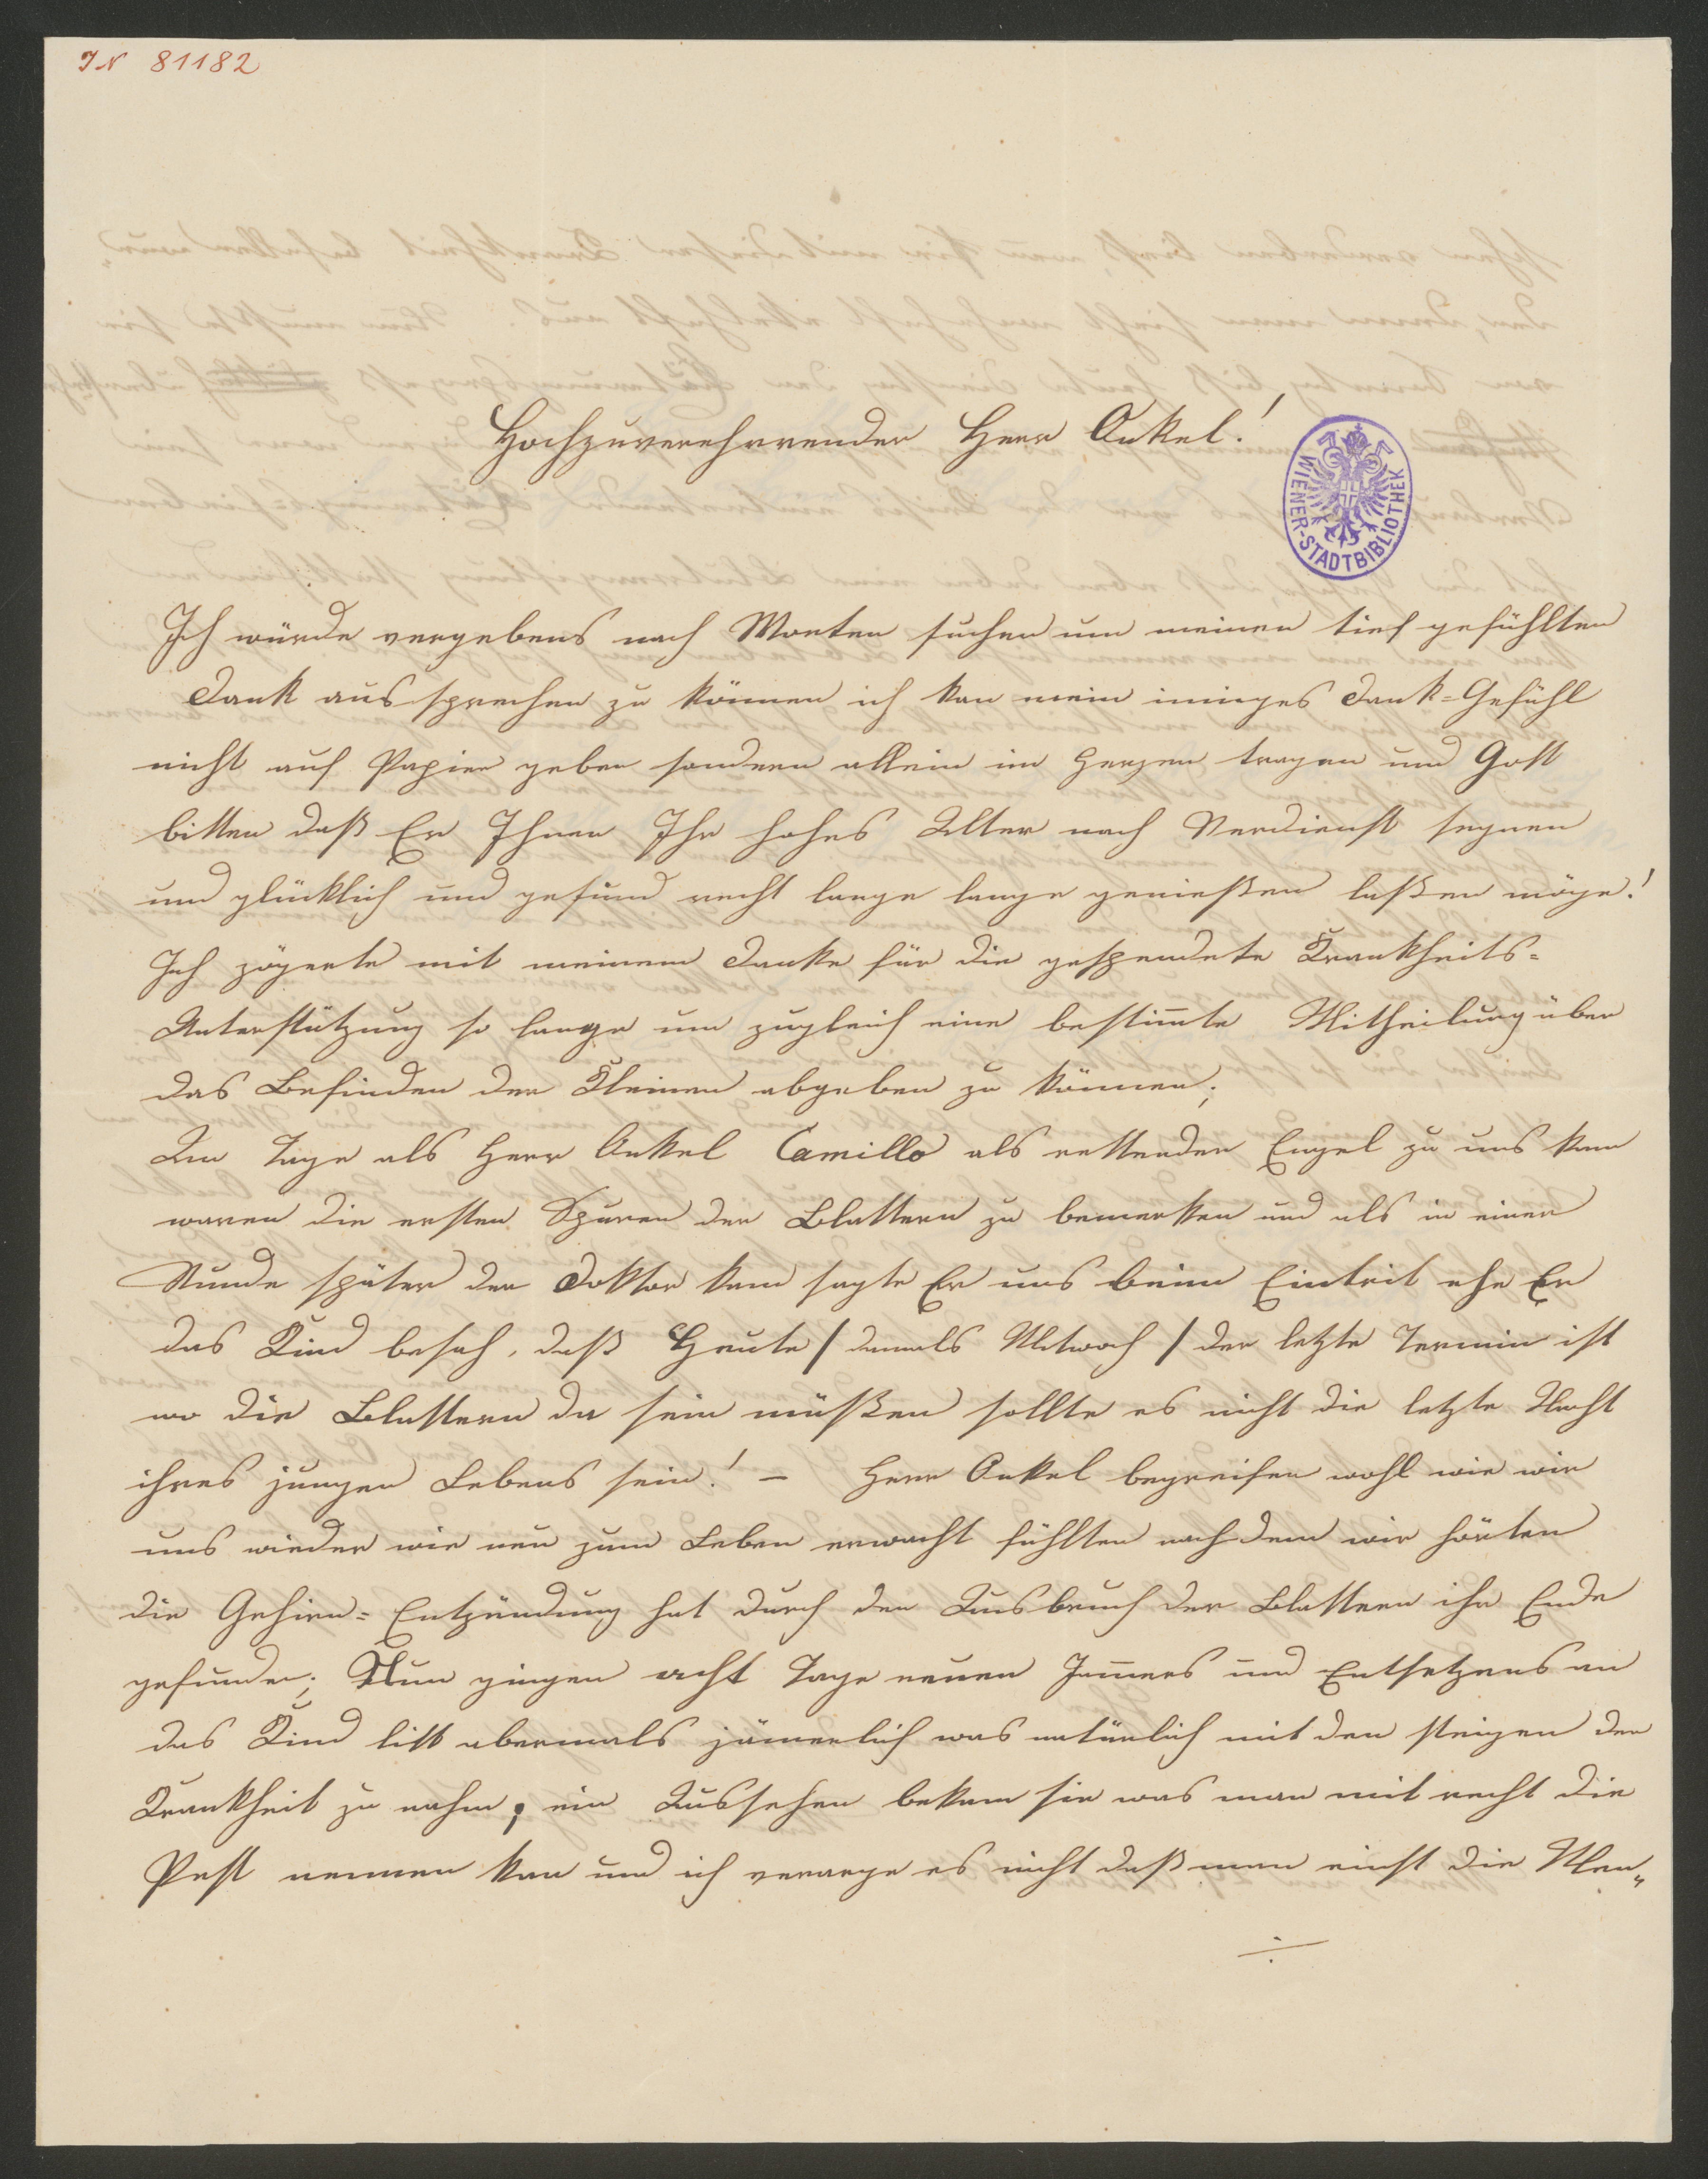 IN 81182
Hochzuverehrender Herr Onkel!
WIENER-STADTBIBLIOTHEK
Ich würde vergebens nach Worten suchen um meinen tief gefühlten
Dank aussprechen zu können ich kan mein inniges Dank=Gefühl
nicht auf Papier geben sondern allein im Herzen tragen und Gott
bitten daß Er Ihnen Ihr hohes Alter nach Verdienst segnen
und glücklich und gesund recht lange lange genießen laßen möge!
Ich zögerte mit meinem Danke für die gespendete Krankheits=
Unterstützung so lange um zugleich eine bestim̅te Mittheilung über
das Befinden der Kleinen abgeben zu können;
Am Tage als Herr Onkel Camillo als rettender Engel zu uns kam
waren die ersten Spuren der Blattern zu bemerken und als in einer
Stunde später der Doktor kam sagte Er uns beim Eintrit ehe Er
das Kind besah, daß Heute / damals Mitwoch / der letzte Termin ist
wo die Blattern da sein müßen sollte es nicht die letzte Nacht
ihres jungen Lebens sein! – Herr Onkel begreifen wohl wie wir
uns wieder wie neu zum Leben erwacht fühlten nachdem wir hörten
die Gehirn=Entzündung hat durch den Ausbruch der Blattern ihr Ende
gefunden; Nun gingen acht Tage neuen Jam̅ers und Entsetzens an
das Kind litt abermals jäm̅erlich was natürlich mit den steigen der
Krankheit zu nahm, ein Aussehen bekam sie was man mit recht die
Pest nennen kan und ich verarge es nicht daß man einst die Men„
÷